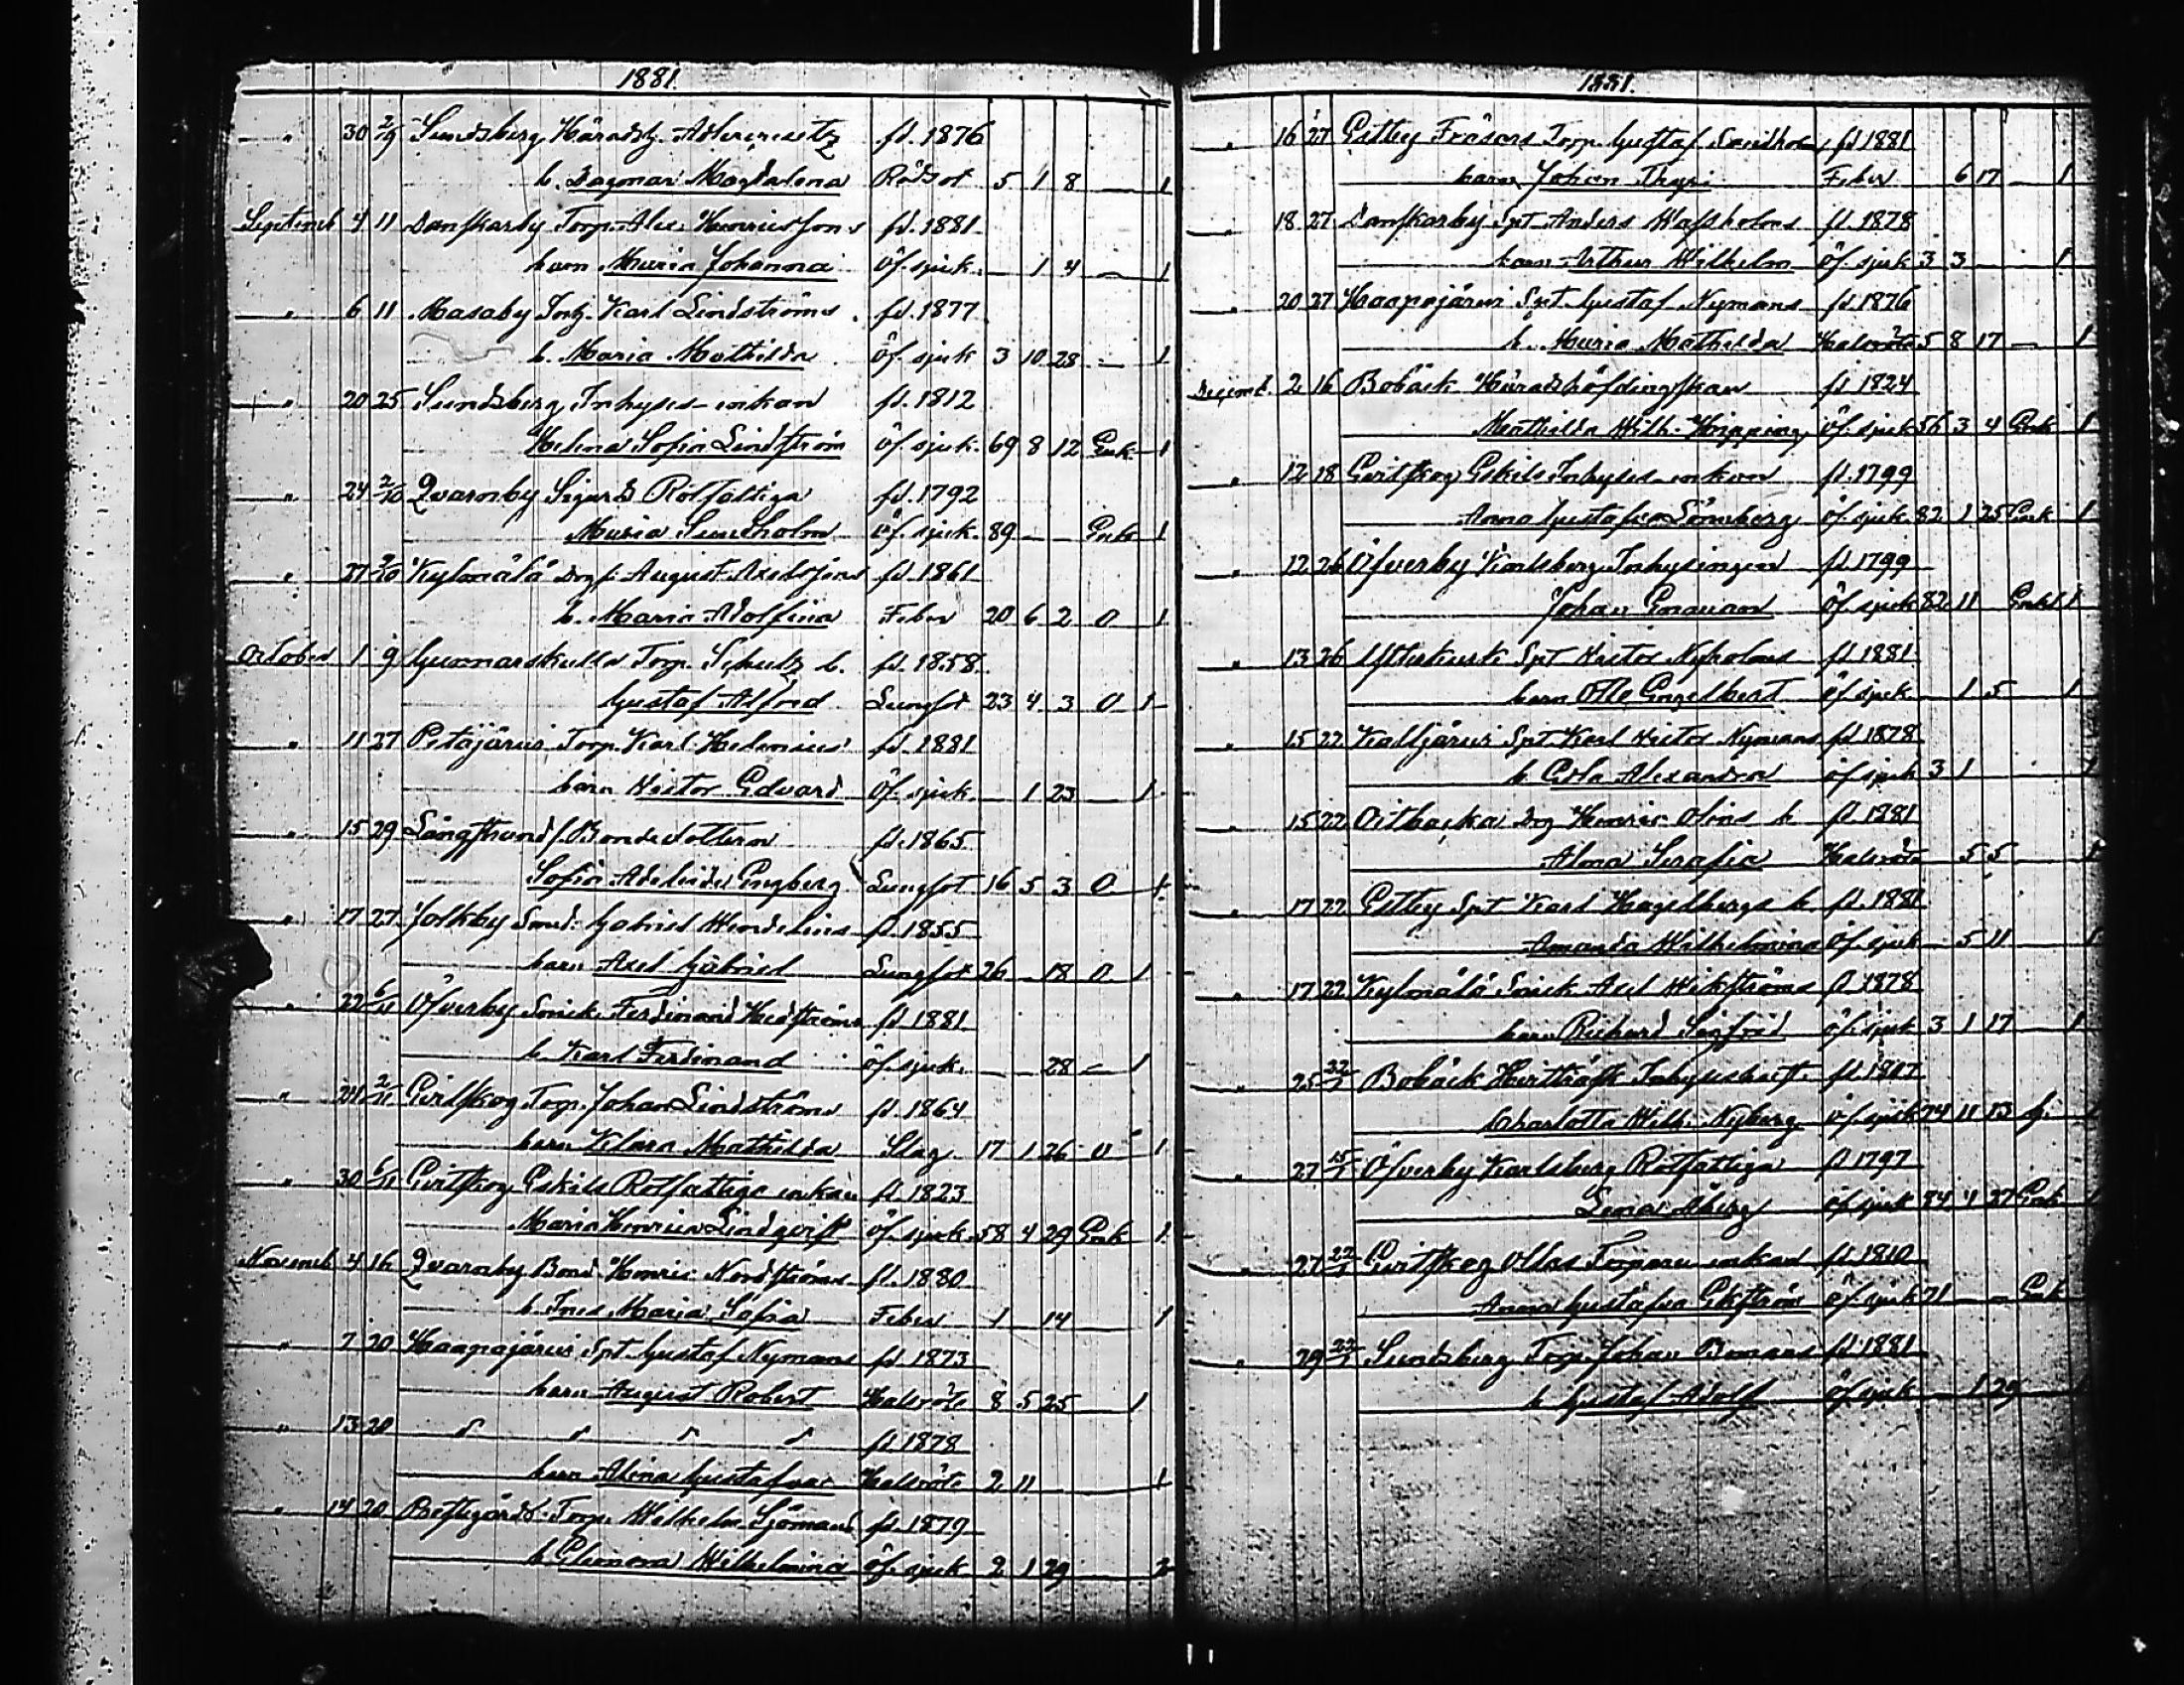 1881.
" 30 2/9 Sundsberg Häradsh. Adlercreutz fd. 1876
b. Dagmar Magdalena Rödsot 5 1 8 — 1
Septemb 4 11 Danskarby Torp. Alex. Henrikssons fd. 1881
barn Maria Johanna Öf. sjuk. — 1 4 — 1
" 6 11 Masaby Inh. Karl Lindströms fd. 1877
b. Maria Mathilda Öf. sjuk 3 10 28 — 1
" 20 25 Sundsberg Inhyses-enkan fd. 1812
Helena Sofia Lindström Öf. sjuk. 69 8 12 Enk. 1
" 24 2/10 Qvarnby Sigurds Rotfattiga fd. 1792
Maria Sundholm Öf. sjuk. 89 — — Enk 1
" 27 2/10 Kylmälä August Axelssons fd. 1861
b. Maria Adolfina Feber 20 6 2 O 1
October 1 9 Gunnarskulla Torp. Schultz b. fd. 1858.
Gustaf Alfred Lungsot 23 4 3 O 1
" 11 27 Petäjärvi Torp. Karl Helenius fd. 1881
barn Victor Edvard Öf. sjuk. — 1 23 — 1
" 15 29 Långstrand Bondedottern fd. 1865
Sofia Adelaide Engberg Lungsot 16 5 3 O 1
" 17 27 Jolkby Smed. Gabriel Wendelius fd. 1855
barn Axel Gabriel Lungsot 26 — 18 O 1
" 22 6/11 Öfverby Snick. Ferdinand Hedströms fd 1881
b. Karl Ferdinand Öf. sjuk. 28 — 1
" 24 2/11 Evitskog Torp. Johan Lindströms fd. 1864
barn Klara Mathilda Slag 17 1 26 O 1
" 30 6/11 Evitskog Eskils Rotfattige enkan fd. 1823
Maria Henrica Lindqvist Öf. sjuk. 58 4 29 Enk 1
Novemb 4 16 Qvarnby Bond. Henric Nordströms fd. 1880
b. Ines Maria Sofia Feber 1 — 14 1
" 7 20 Haapajärvi Spt. Gustaf Nymans fd 1873
barn August Robert Halsröta 8 5 25 1
" 13 20 " " " " fd. 1878
barn Alina Gustafva Halsröta 2 11 1
" 14 20 Torp. Wilhelm Sjömans fd. 1879
b Eleonora Wilhelmina Öf. sjuk 2 1 29 2
1881.
" 16 27 Estby Fräsars Torp. Gustaf Sandholms fd 1881
barn Johan Feber 6 17 — 1
" 18 27 Danskarby Spt. Anders Wassholms fd. 1878
barn Arthur Wilhelm Öf. sjuk 3 3 — 1
" 20 27 Haapajärvi Spt. Gustaf Nymans fd. 1876
b. Maria Mathilda Halsröta 5 8 17 — 1
Decemb. 2 16 Bobäck Häradshöfdingskan fd 1824
Mathilda Wilh. Öf. sjuk 56 3 4 Enk 1
" 12 18 Evitskog Eskils Inhyses-enkan fd. 1799
Anna Gustafva Lönnberg Öf. sjuk 82 1 25 Enk 1
" 12 26 Öfverby Karlsberg Inhysingen fd. 1799
Johan Öf. sjuk 82 11 Enkl 1
" 13 26 Ytterkurk Spt Victor Nyholms fd 1881
barn Otto Engelbert Öf. sjuk — 1 5 1
" 15 22 Kaltjärvi Spt. Karl Victor Nymans fd 1878
b. Edla Alexandra Öf. sjuk 3 1 1
" 15 22 Oitbacka Drg Henric Olins b fd 1881
Alma Serafia Halsröta 5 5 1
" 17 22 Estby Spt Karl Hagelbergs b. fd. 1881
Amanda Wilhelmina Öf. sjuk — 5 11 1
" 17 22 Kylmälä Snick. Axel Wikströms fd 1878
barn Richard Sigfrid Öf. sjuk 3 1 17 1
" 25 22/1 Bobäck fd. 1807
Charlotta Wilh. Nyberg Öf. sjuk 74 11 13 1
" 27 15/1 Öfverby Karlsberg Rotfattiga fd 1797
Lena Åberg Öf. sjuk 84 4 27 Enk 1
" 27 22/1 Evitskog Ollas Torpare enkan fd. 1810
Anna Gustafva Ekström Öf. sjuk 71 — — Enk
" 29 22/1 Sundsberg Torp. Johan Bomans fd 1881
b Gustaf Adolf Öf. sjuk — 1 29 1